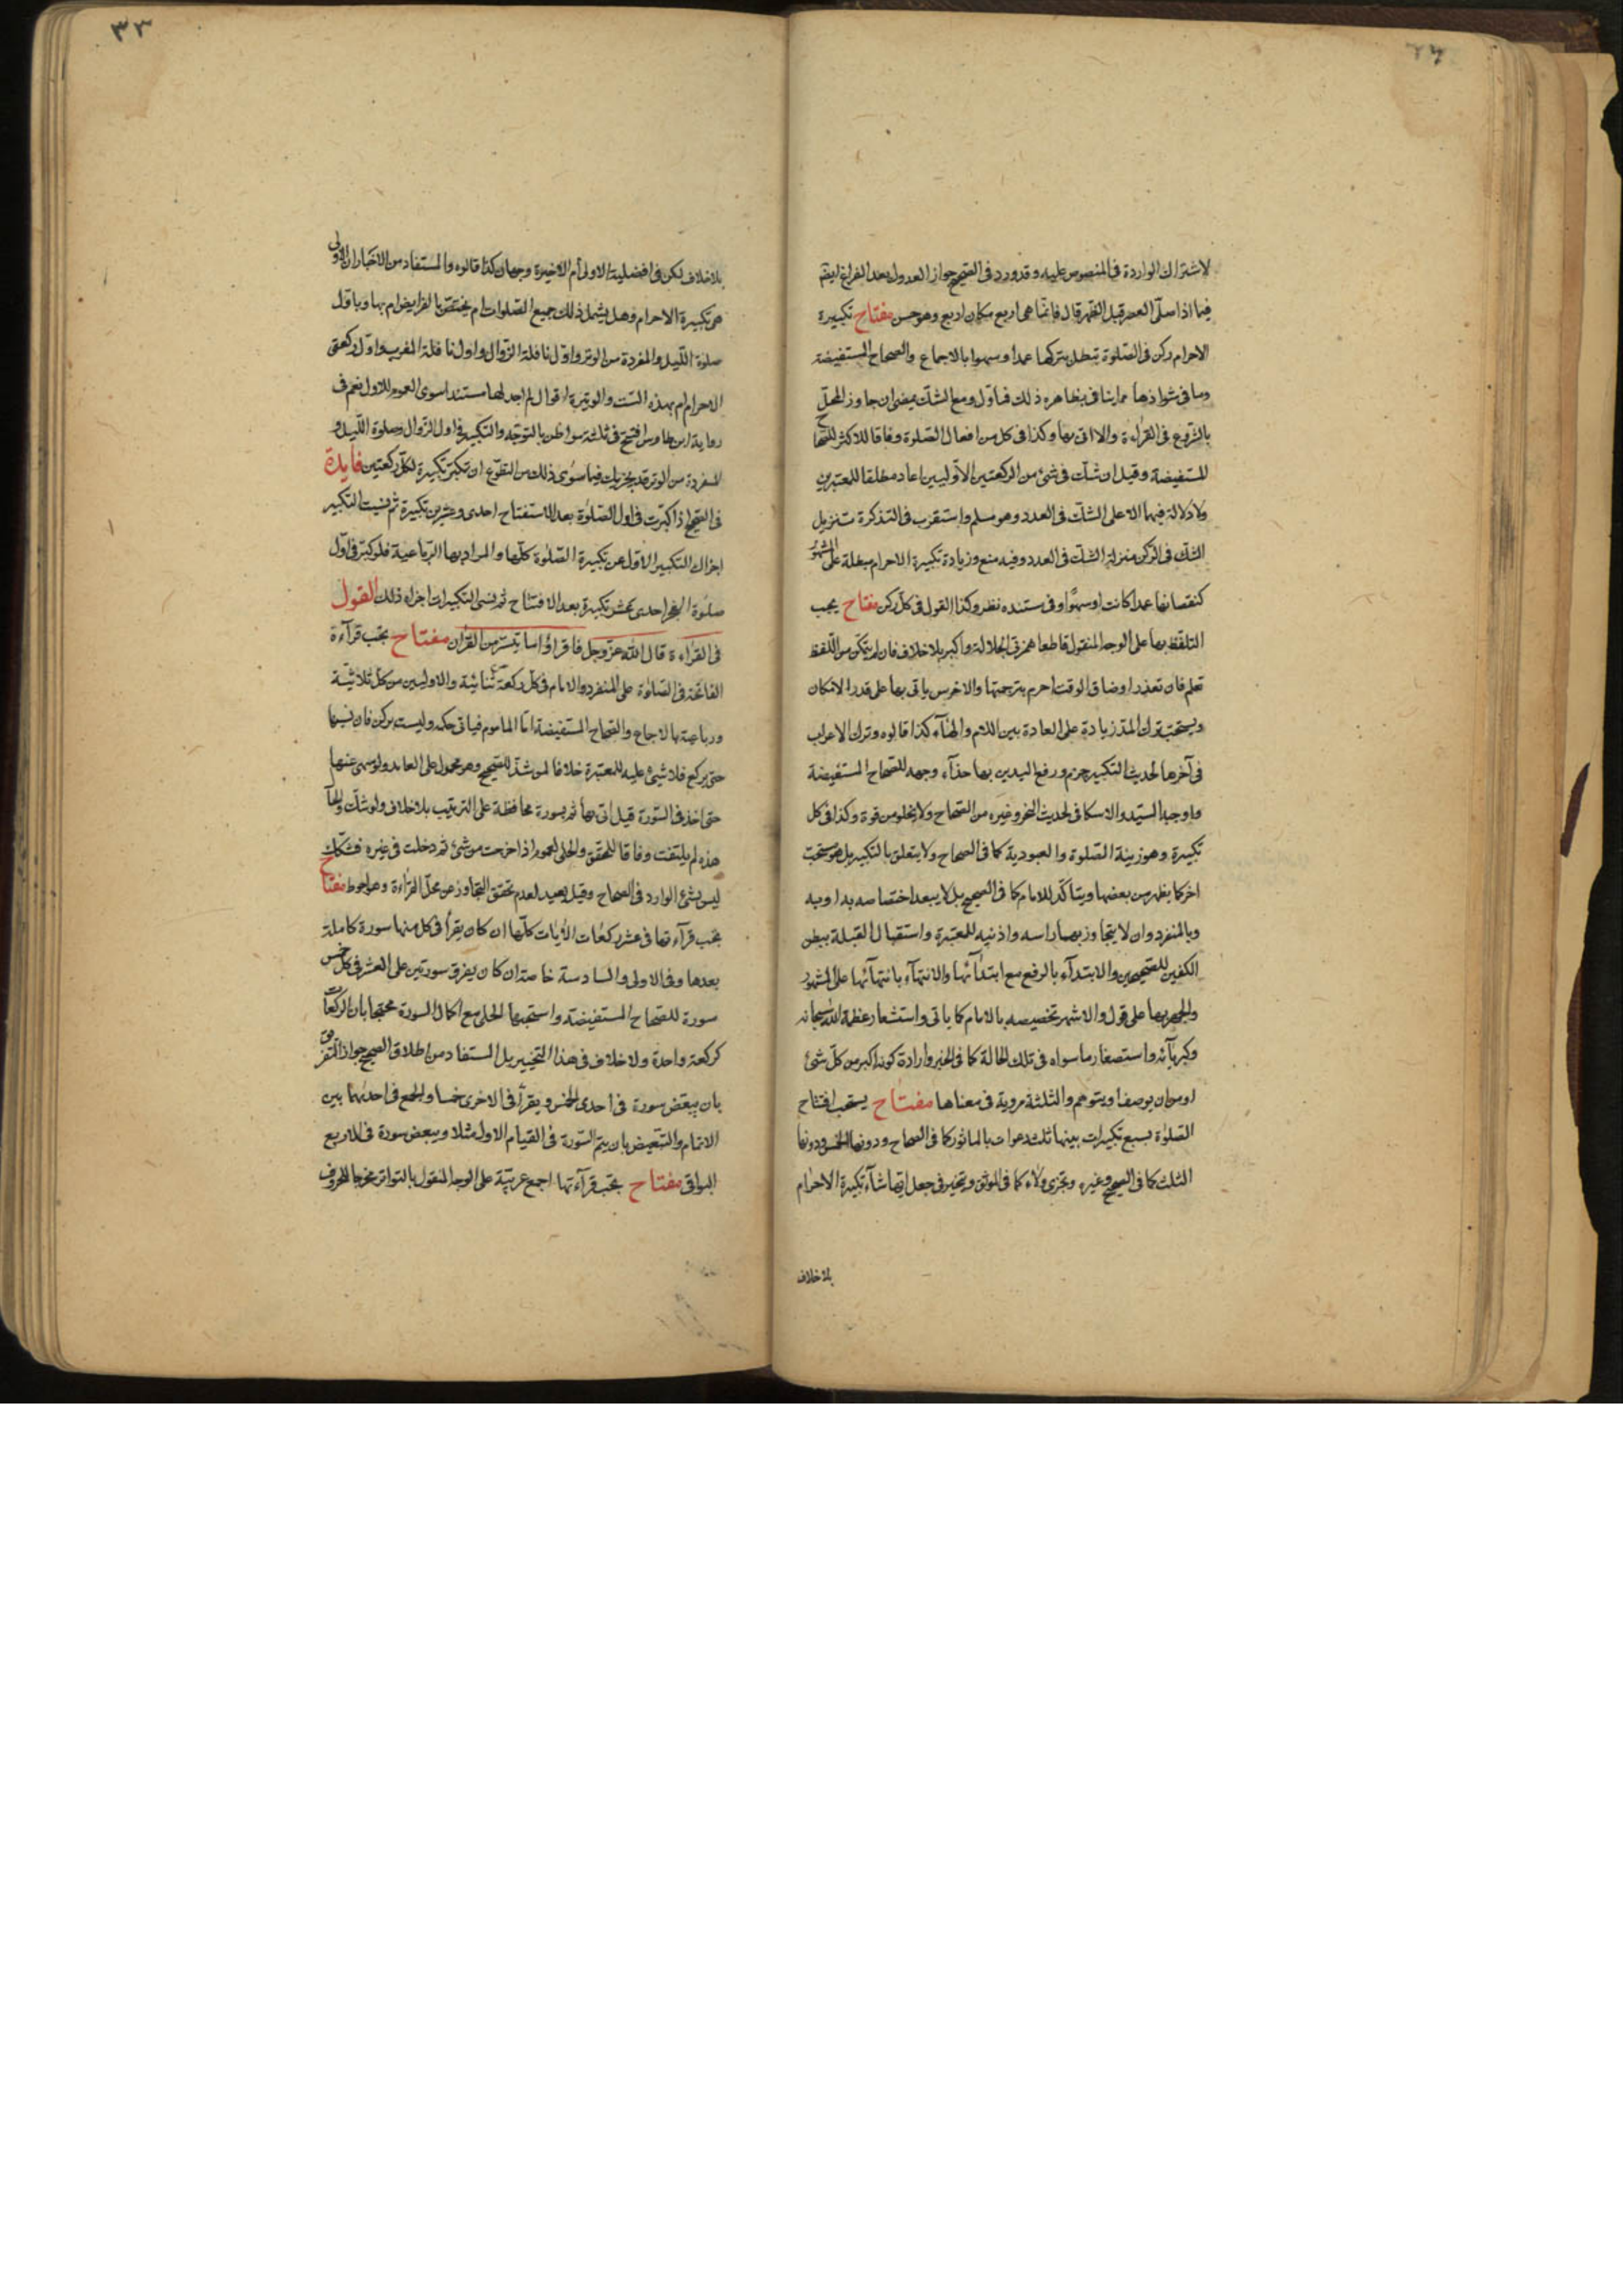 لاشتراك الواردة فی المنصوص علیه وقد ورد فی الصحیح جواز العدول بعد الفراغ ایضا
فیما اذا صلی العصر قبل الظهر قال فانما هی اربع مکان اربع وهو حسن مفتاح تکبیرة
الاحرام رکن فی الصلوة تبطل بترکها عمدا وسهوا بالاجماع والصحاح المستفیضة
وما فی شواذها مما ینافی بظاهره ذلك فماول ومع الشك یمضی ان جاوز المحل
بالشروع فی القراءة والا اتی بها وکذا فی کل من افعال الصلوة وفاقا للاکثر للصحاح
المستفیضة وقیل ان شك فی شئ من الرکعتین الاولیین اعاد مطلقا للمعتبرین
ولا دلالة فیهما الا علی الشك فی العدد وهو مسلم واستقرب فی التذکرة تنزیل
الشك فی الرکن منزلة الشك فی العدد وفیه منع وزیادة تکبیرة الاحرام مبطلة علی المشهور
کنقصانها عمدا کانت او سهوا وفی مستنده نظر وکذا القول فی کل رکن مفتاح یجب
التلفظ بها علی الوجه المنقول قاطعا همزتی الجلالة واکبر بلا خلاف فان لم یتمکن من اللفظ
تعلم فان تعذر او ضاق الوقت احرم بترجمتها والاخرس یاتی بها علی قدر الامکان
ویستحب ترك المد زیادة علی العادة بین اللام والهاء کذا قالوه وترك الاعراب
فی آخرها لحدیث التکبیر جزم ورفع الیدین بها حذاء وجهه للصحاح المستفیضة
واوجبه السید والاسکافی لحدیث النحر وغیره من الصحاح ولا یخلو من قوة وکذا فی کل
تکبیرة وهو زینة الصلوة والعبودیة کما فی الصحاح ولا یتعلق بالتکبیر بل هو مستحب
اخر کما یظهر من بعضها ویتاکد للامام کما فی الصحیح بل لا یبعد اختصاصه به او به
وبالمنفرد وان لا یتجاوز بهما راسه واذنیه للمعتبرة واستقبال القبلة ببطن
الکفین للصحیحین والابتداء بالرفع مع ابتدائها والانتهاء بانتهائها علی المشهور
والجهر بها علی قول والاشهر تخصیصه بالامام کما یاتی واستشعار عظمة الله سبحانه
وکبریائه واستصغار ما سواه فی تلك الحالة کما فی الخبر وارادة کونه اکبر من کل شئ
او من ان یوصف او یتوهم والثلثة مرویة فی معناها مفتاح یستحب افتتاح
الصلوة بسبع تکبیرات بینها ثلث دعوات بالماثور کما فی الصحاح ودونها الخمس ودونها
الثلث کما فی الصحیح وغیره وتجزی ولاء کما فی الموثق ویتخیر فی جعل ایها شاء تکبیرة الاحرام
بلا خلاف
٣٣
بلا خلاف لکن فی افضلیة الاولی أم الاخیرة وجهان کذا قالوه والمستفاد من الاخبار ان الاولی
هی تکبیرة الاحرام وهل یشمل ذلك جمیع الصلوات ام یختص بالفرایض ام بها وباول
صلوة اللیل والمفردة من الوتر واول نافلة الزوال واول نافلة المغرب واول رکعتی
الاحرام ام بهذه الست والوتیرة اقوال لم اجد لها مستندا سوی العموم للاول نعم فی
روایة ابن طاوس افتتح فی ثلثة مواطن بالتوجه والتکبیر فی اول الزوال وصلوة اللیل و
المفردة من الوتر وقد یجزیك فیما سوی ذلك من التطوع ان تکبر تکبیرة لکل رکعتین فایدة
فی الصحیح اذا کبرت فی اول الصلوة بعد الاستفتاح احدی وعشرین تکبیرة ثم نسیت التکبیر
اجزاك التکبیر الاول عن تکبیرة الصلوة کلها والمراد بها الرباعیة فلو کبر فی اول
صلوة الفجر احدی عشر تکبیرة بعد الافتتاح ثم نسی التکبیرات اجزاه ذلك القول
فی القراءة قال الله عز وجل فاقرأوا ما تیسر من القران مفتاح تجب قراءة
الفاتحة فی الصلوة علی المنفرد والامام فی کل رکعة ثنائیة والاولیین من کل ثلاثیة
ورباعیة بالاجماع والصحاح المستفیضة اما الماموم فیاتی حکمه ولیست برکن فان نسیها
حتی یرکع فلا شئ علیه للمعتبرة خلافا لمن شذ للصحیح وهو محمول علی العامد ولو سهی عنها
حتی اخذ فی السورة قیل اتی بها ثم بسورة محافظة علی الترتیب بلا خلاف ولو شك والحال
هذه لم یلتفت وفاقا للمحقق والحلی لعموم اذا خرجت من شئ ثم دخلت فی غیره فشکك
لیس بشئ الوارد فی الصحاح وقیل یعید لعدم تحقق التجاوز عن محل القراءة وهو احوط مفتاح
تجب قرآءتها فی عشر رکعات الآیات کلها ان کان یقرأ فی کل منها سورة کاملة
بعدها وفی الاولی والسادسة خاصة ان کان یفرق سورتین علی العشر فی کل خمس
سورة للصحاح المستفیضة واستحبها الحلی مع اکمال السورة محتجا بان الرکعات
کرکعة واحدة ولا خلاف فی هذا التخییر بل المستفاد من اطلاق الصحیح جواز التفریق
بان یبعض سورة فی احدی الخمس ویقرأ فی الاخری خمسا والجمع فی احدیهما بین
الاتمام والتبعیض بان یتم السورة فی القیام الاول مثلا ویبعض سورة فی الاربع
البواقی مفتاح تجب قرآءتها اجمع عربیة علی الوجه المنقول بالتواتر مخرجا للحروف